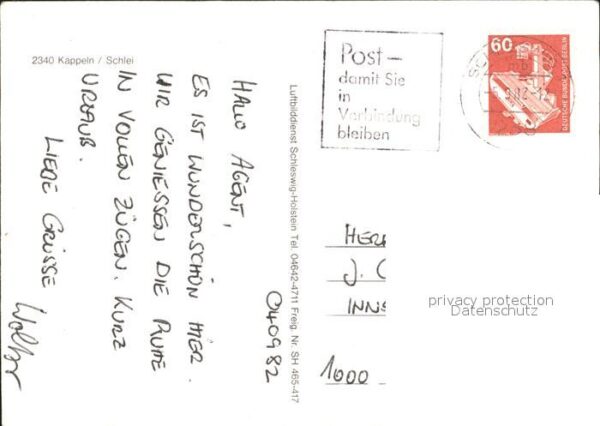 2340 Kappeln / Schlei
040982
HALLO AGENT,
ES IST WUNDERSCHÖN HIER.
WIR GENIESSEN DIE RUHE
IN VOLLEN ZÜGEN. KURZ
URLAUB.
LIEBE GRÜSSE
Luftbilddienst Schleswig-Holstein Tel. 04642-4711 Freig. Nr. SH 465-417
Post –
damit Sie
in
Verbindung
bleiben
60
DEUTSCHE BUNDESPOST BERLIN
HER
J.
INNS
1000
privacy protection
Datenschutz